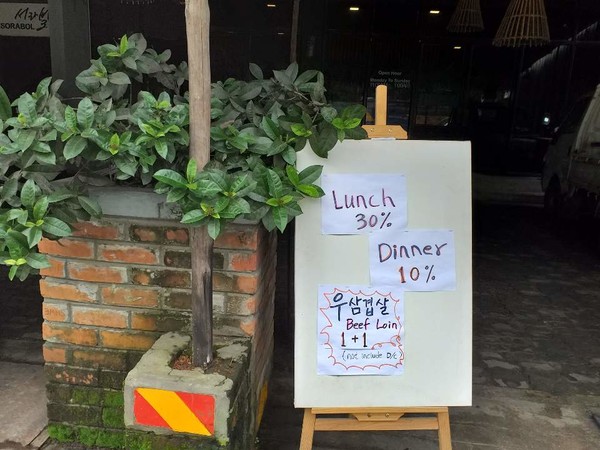 서라벌
SORABOL
Open Hour
Monday To Sunday
Lunch
30%
Dinner
10%
우삼겹살
Beef Loin
1+1
(not include D/C)